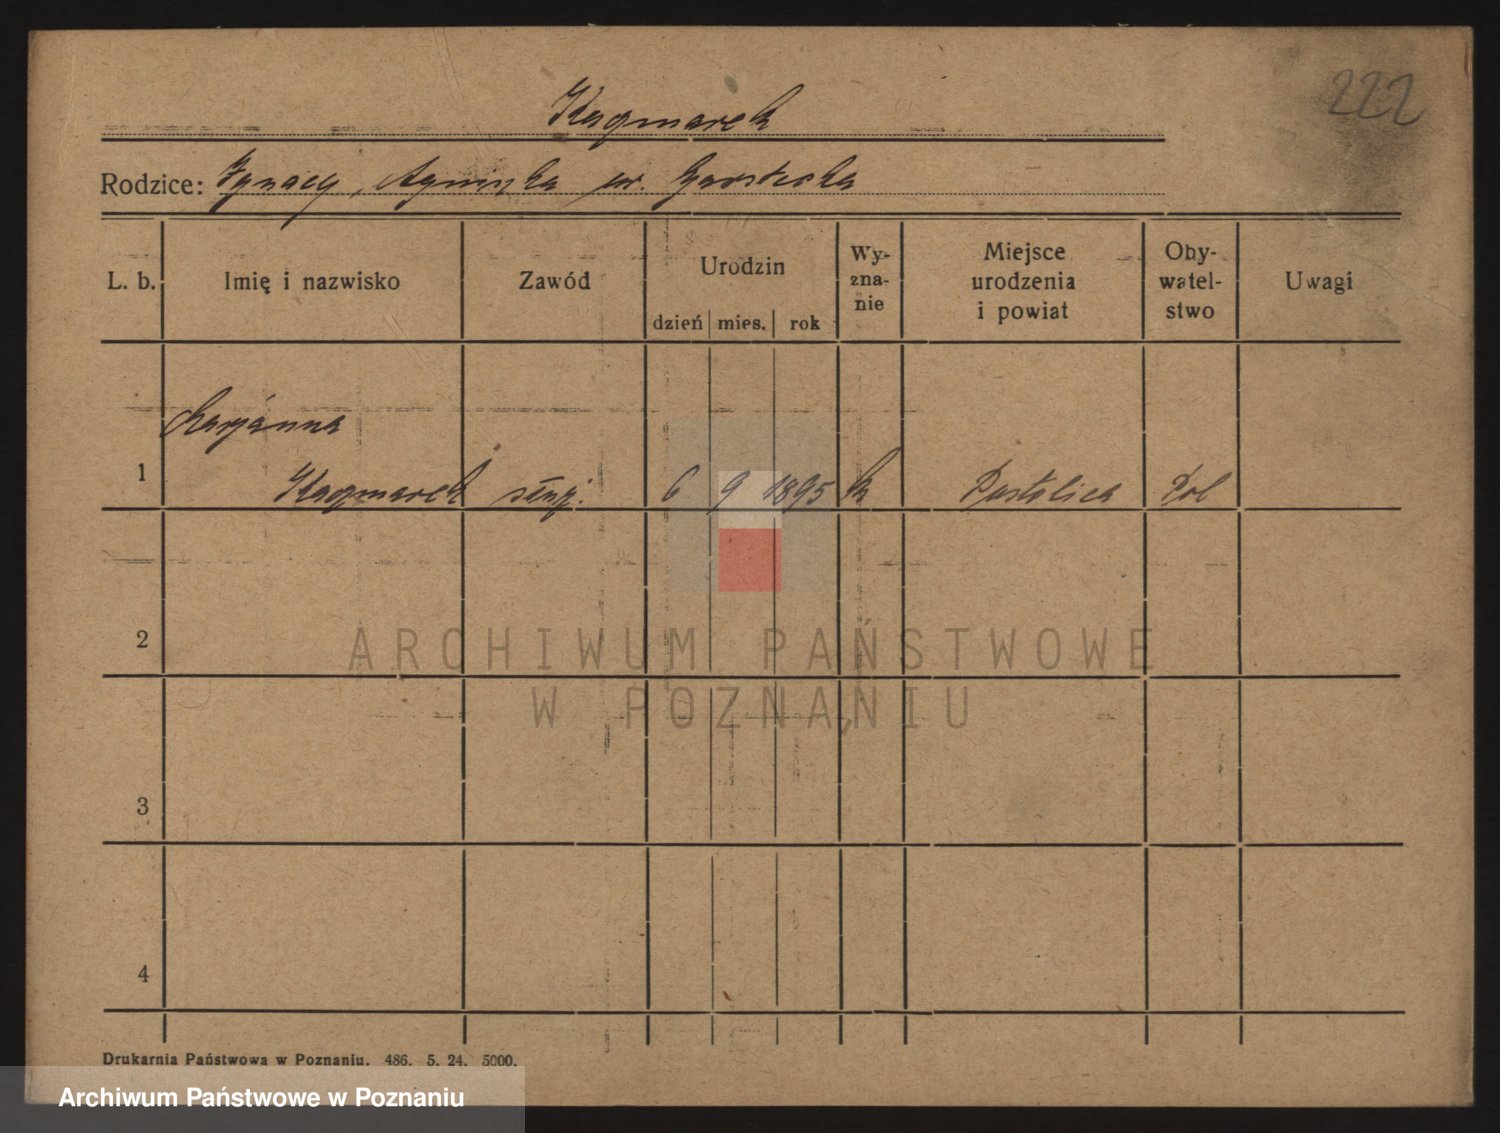 222
Kaczmarek
Rodzice: Ignacy, Agnieszka ur.
L. b. Imię i nazwisko Zawód Urodzin dzień mies. rok Wy-zna-nie Miejsce urodzenia i powiat Oby-watel-stwo Uwagi
Marjanna
1 Kaczmarek służ. 6 9 1895 k Pol
2
ARCHIWUM PAŃSTWOWE
W POZNANIU
3
4
Drukarnia Państwowa w Poznaniu. 486. 5. 24. 5000.
Archiwum Państwowe w Poznaniu